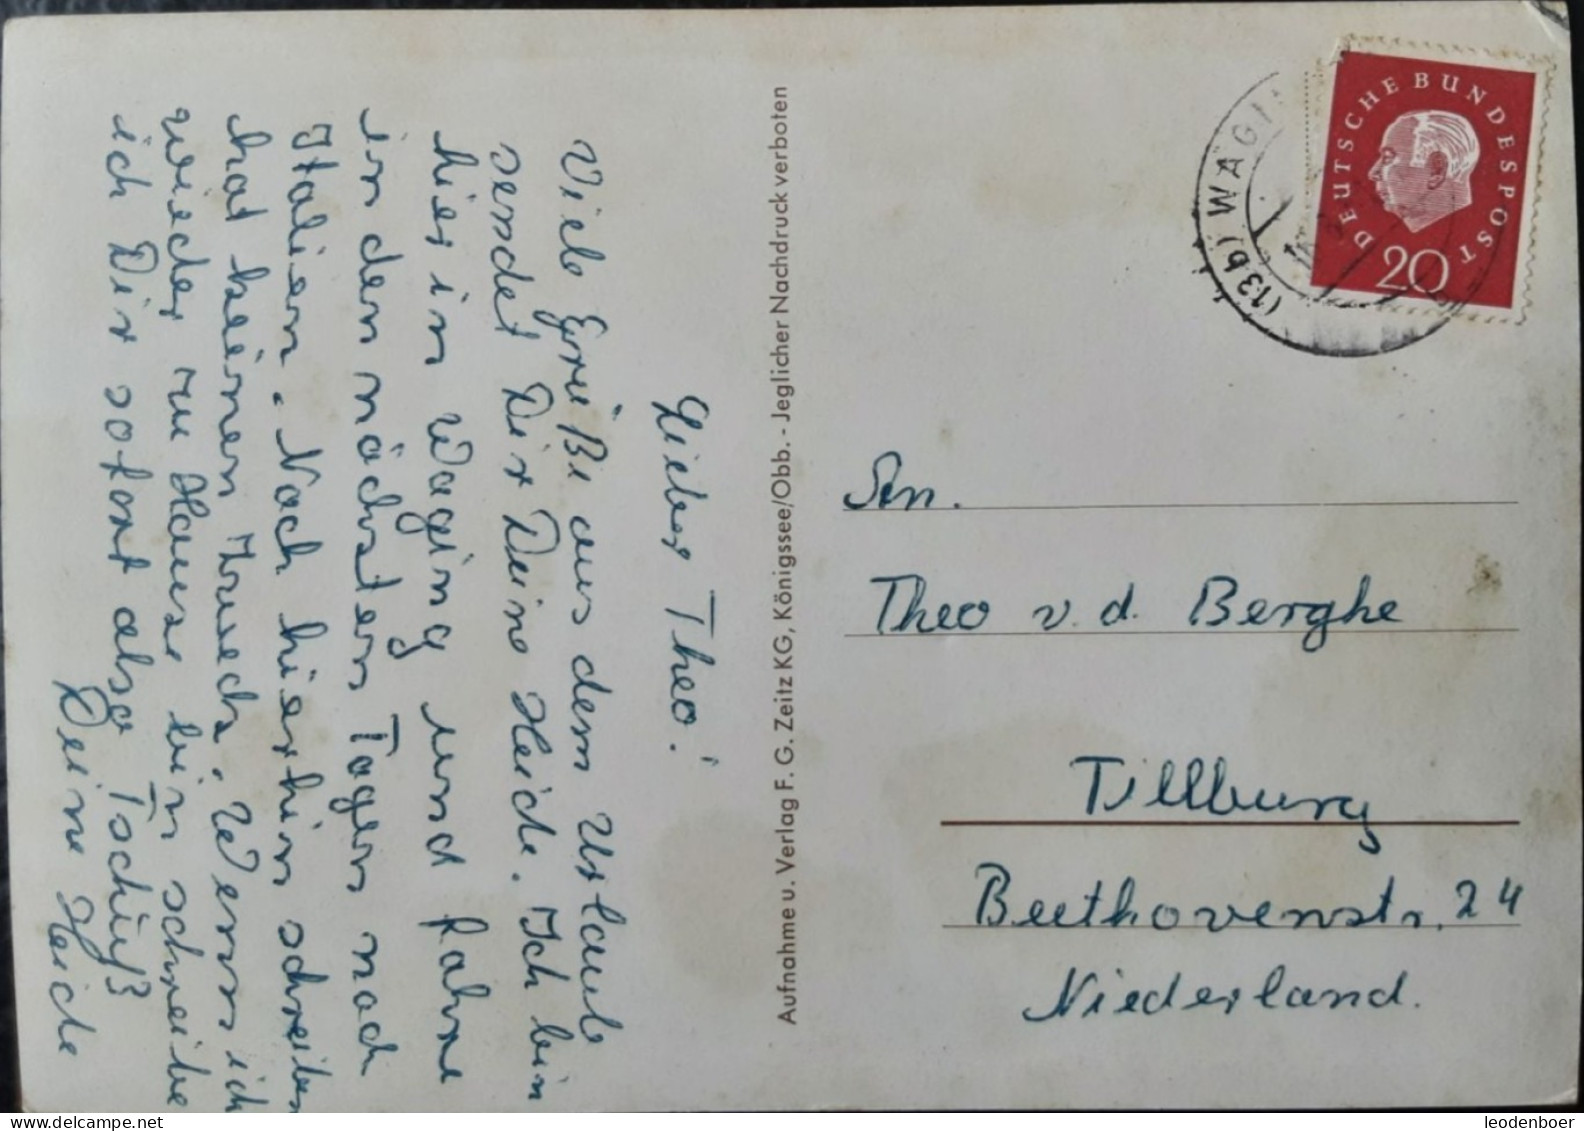 Lieber Theo!
Viele Grüße aus dem Urlaub
sendet Dir Deine Heide. Ich bin
hier in Waging und fahre
in den nächsten Tagen nach
Italien. Nach hierhin schreiben
hat keinen Zweck. Wenn ich
wieder zu Hause bin schreibe
ich Dir sofort also Tschüß
Deine Heide
Aufnahme u. Verlag F. G. Zeitz KG, Königssee/Obb. - Jeglicher Nachdruck verboten
(13b) WAGIN
DEUTSCHE BUNDESPOST
20
An.
Theo v. d. Berghe
Tillburg
Beethovenstr. 24
Niederland.
leodenboer